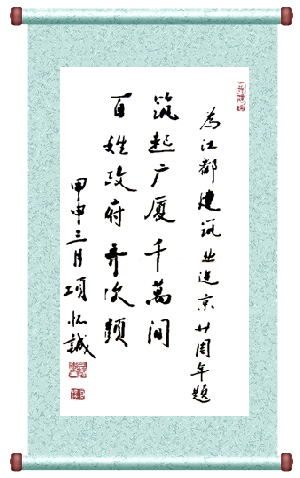 為江都建筑业进京廿周年题
筑起广厦千萬间
百姓政府齐欢颜
甲申三月项怀誠